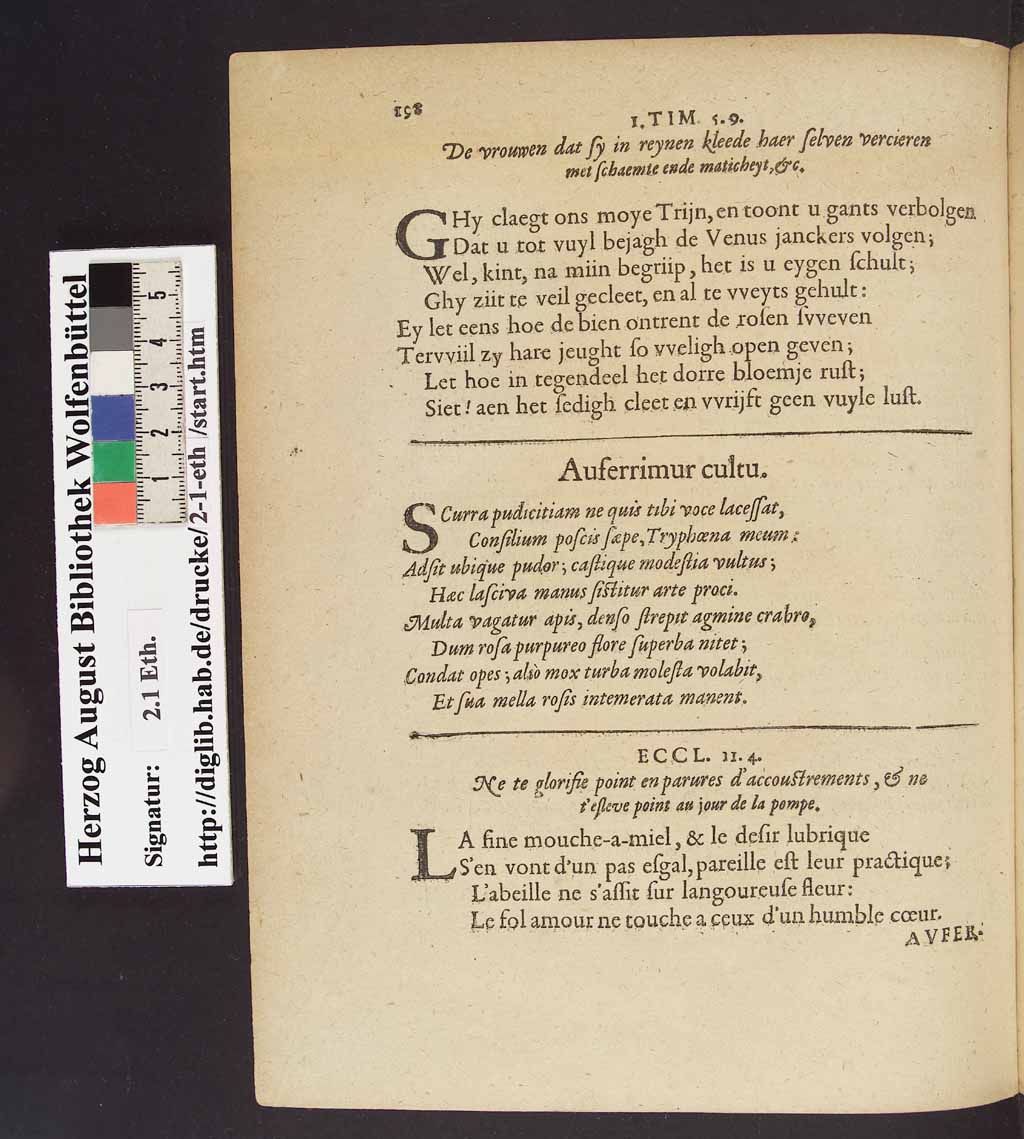 198
1. TIM. 5.9.
De vrouwen dat ſy in reynen kleede haer ſelven vercieren
met ſchaemte ende maticheyt, &c.
GHy claegt ons moye Trijn, en toont u gants verbolgen
Dat u tot vuyl bejagh de Venus janckers volgen;
Wel, kint, na miin begriip, het is u eygen ſchult;
Ghy ziit te veil gecleet, en al te vveyts gehult:
Ey let eens hoe de bien ontrent de roſen ſvveven
Tervviil zy hare jeught ſo vveligh open geven;
Let hoe in tegendeel het dorre bloemje ruſt;
Siet! aen het ſedigh cleet en vvrijft geen vuyle luſt.
Auferrimur cultu.
SCurra pudicitiam ne quis tibi voce laceſſat,
Conſilium poſcis ſæpe, Tryphœna meum:
Adſit ubique pudor; caſtique modeſtia vultus;
Hæc laſciva manus ſiſtitur arte proci.
Multa vagatur apis, denſo ſtrepit agmine crabro,
Dum roſa purpureo flore ſuperba nitet;
Condat opes; aliò mox turba moleſta volabit,
Et ſua mella roſis intemerata manent.
ECCL. 11.4.
Ne te glorifie point en parures d'accouſtrements, & ne
t'eſleve point au jour de la pompe.
LA fine mouche-a-miel, & le deſir lubrique
S'en vont d'un pas eſgal, pareille eſt leur practique;
L'abeille ne s'aſſit ſur langoureuſe fleur:
Le fol amour ne touche a ceux d'un humble cœur.
AVFER-
Herzog August Bibliothek Wolfenbüttel
Signatur: 2.1 Eth.
http://diglib.hab.de/drucke/2-1-eth /start.htm
1 2 3 4 5